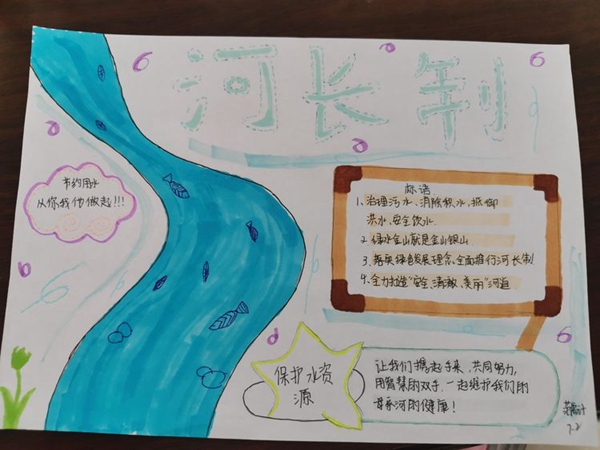 河长制
节约用水
从你我他做起!!!
标语
1、治理污水、消除积水、抵御
洪水、安全饮水
2、绿水金山就是金山银山
3、落实绿色发展理念,全面推行河长制
4、全力打造“安全、清澈、美丽”河道
保护水资
源
让我们携起手来、共同努力,
用勤幫的双手,一起维护我们的
母亲河的健康!
7.2